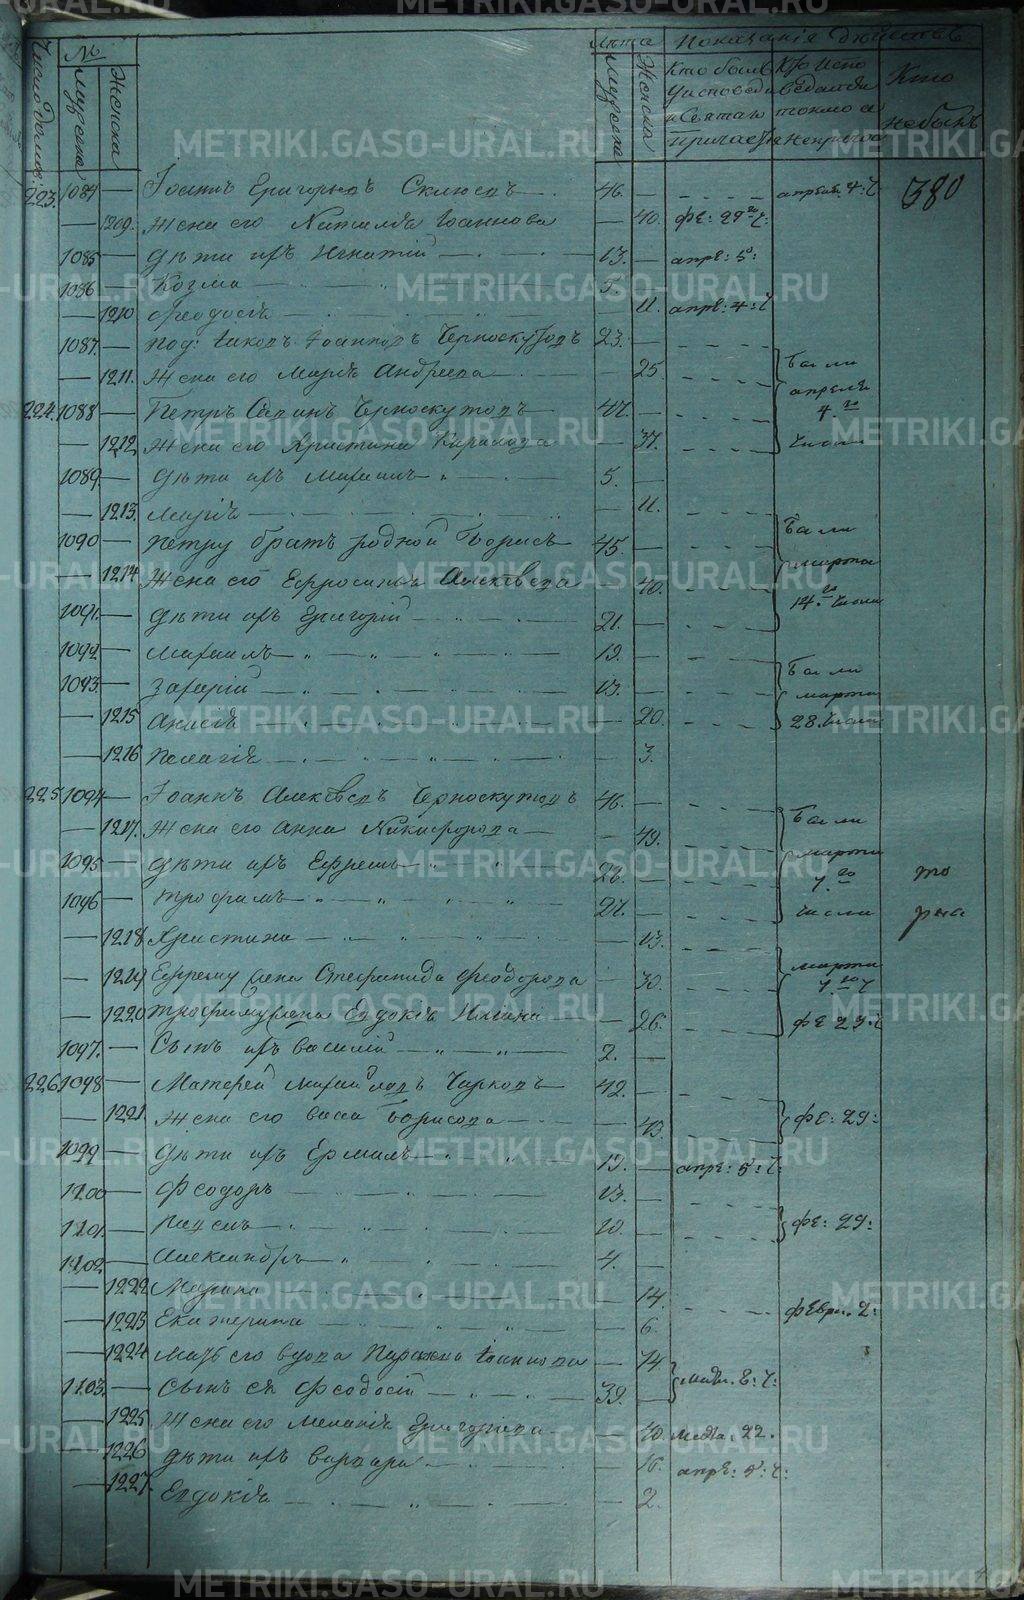 Число домовъ. № Лѣта Показанія дѣйствъ
Мужска Женска Мужска Женска
Кто былъ у исповѣди и Святаго Причастія
Кто исповѣдался токмо а не причас
Кто не былъ
223. 1084 — Іоаннъ Григорьевъ 46. — апрѣл. 4: ч 380
— 1209. Жена его Наталія Іоаннова — 40. фе: 29го ч:
1085 — Дѣти ихъ Игнатій 13. — апре: 5:
1086 — Козма 5. —
— 1210 Феодосія 11. апре: 4: ч
1087. — под: Іоанновъ Черноскутовъ 23. —
— 1211. Жена его Марія Андреева — 25.
Были апреля 4.го числа
224. 1088 — Петръ Савинъ Черноскутовъ 47. —
— 1212 Жена его Христина — 37.
1089 — Дѣти ихъ Михаилъ 5. —
— 1213. Марія — 11.
1090 — Петру братъ родной Борисъ 45. —
Были марта 14.го числа
— 1214 Жена его Ефросинья Алексѣева — 40.
1091. — Дѣти ихъ Григорій 21. —
1092 — Михаилъ 19. —
1093. — Захарій 13. —
Были марта 28. числа
— 1215 Анисія — 20.
— 1216 Пелагія — 3.
225 1094 — Іоаннъ Алексѣевъ Черноскутовъ 46. —
— 1217. Жена его Анна Никифорова — 49.
Были марта 7.го числа
1095 — Дѣти ихъ Ефремъ 26. —
1096 — Трофимъ 21. —
— 1218 Христина — 13.
— 1219 Ефрему жена Стефанида Феодорова — 30.
марта 7.го ч
— 1220 Трофиму жена Евдокія Ильина — 26. фе 29. ч
1097. — Сынъ ихъ Василій 2. —
226 1098 — Матфей Чирковъ 42. —
— 1221. Жена его Васса Борисова — 43. фе: 29:
1099 — Дѣти ихъ Ермилъ 19. — апре: 5: ч:
1100 — Феодоръ 13. —
1101. — Павелъ 10. — фе: 29:
1102. — Александръ 4. —
— 1222 Марина — 14. февра. 2:
— 1223 Екатерина — 6.
— 1224 Мать его вдова Параскева Іоаннова — 74
1103. — Сынъ ея Феодосій 39. —
— 1225 Жена его Меланія Григорьева — 40.
— 1226 Дѣти ихъ Варвара — 16. апре: 5: ч:
— 1227. Евдокія — 2.
METRIKI.GASO-URAL.RU